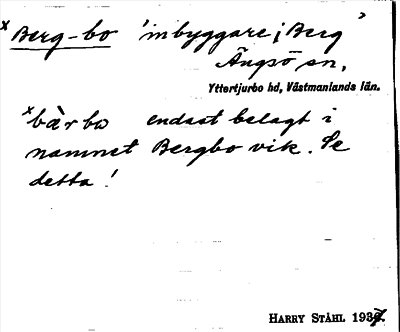 x Berg-bo 'inbyggare i Berg'
Ängsö sn,
Yttertjurbo hd, Västmanlands län.
x bàrbo endast belagt i
namnet Bergbo vik. Se
detta!
HARRY STÅHL 1937.